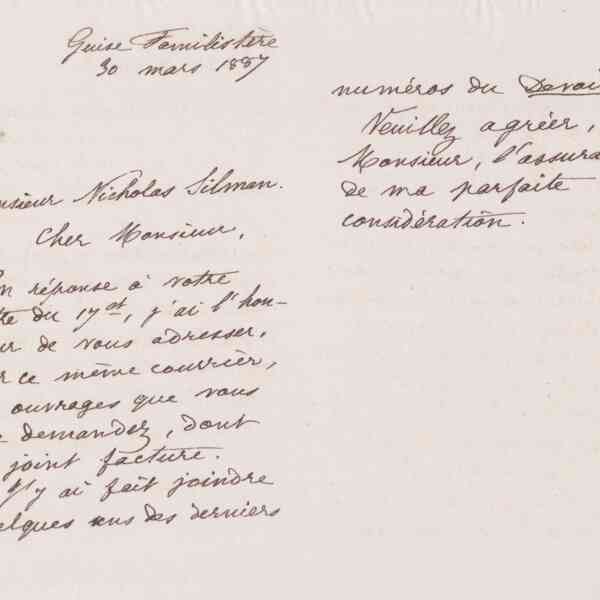 Guise Familistère
30 mars 1887
nsieur Nicholas Silman.
Cher Monsieur,
n réponse à votre
tre du 17 ct, j'ai l'hon-
ur de vous adresser,
r ce même courrier,
ouvrages que vous
e demandez, dont
joint facture.
J'y ai fait joindre
elques uns des derniers
numéros du Devoi
Veuillez agréer,
Monsieur, l'assura
de ma parfaite
considération.